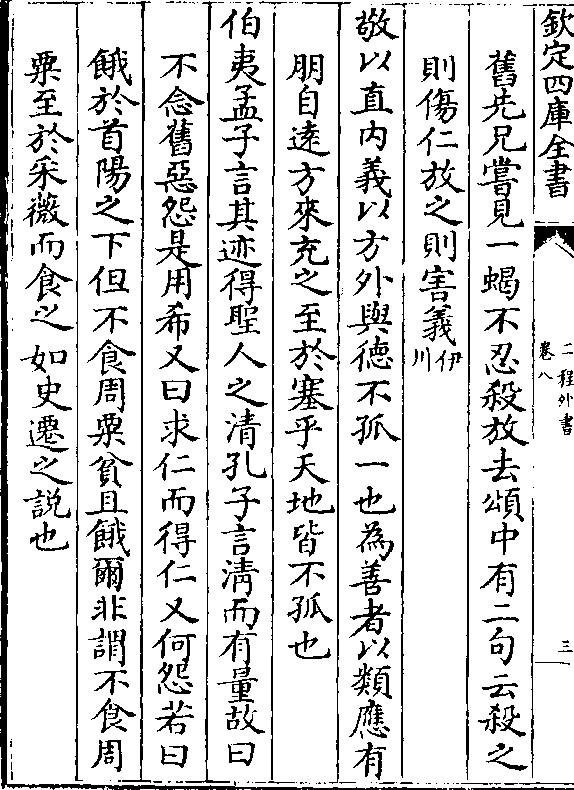 欽定四庫全書
二程外書
卷八
三
舊先兄嘗見一蝎不忍殺放去頌中有二句云殺之
則傷仁放之則害義伊川
敬以直内義以方外與德不孤一也為善者以類應有
朋自遠方來充之至於塞乎天地皆不孤也
伯夷孟子言其迹得聖人之清孔子言清而有量故曰
不念舊惡怨是用希又曰求仁而得仁又何怨若曰
餓於首陽之下但不食周粟貧且餓爾非謂不食周
粟至於采薇而食之如史遷之説也